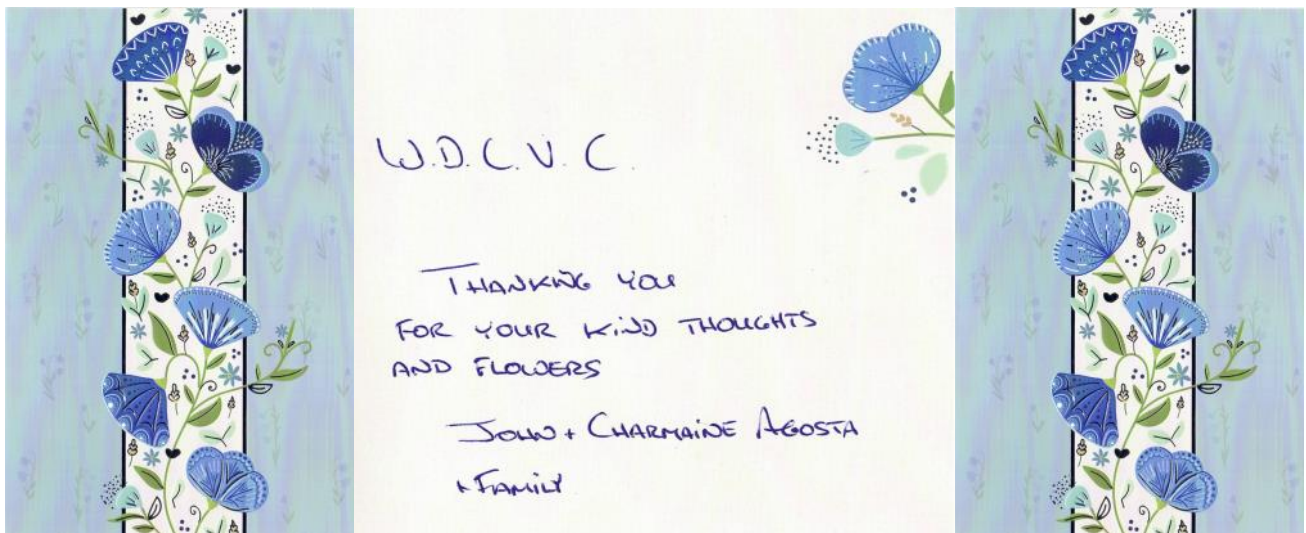 W.D.C.V.C.
THANKING YOU
FOR YOUR KIND THOUGHTS
AND FLOWERS
JOHN + CHARMAINE AGOSTA
+ FAMILY